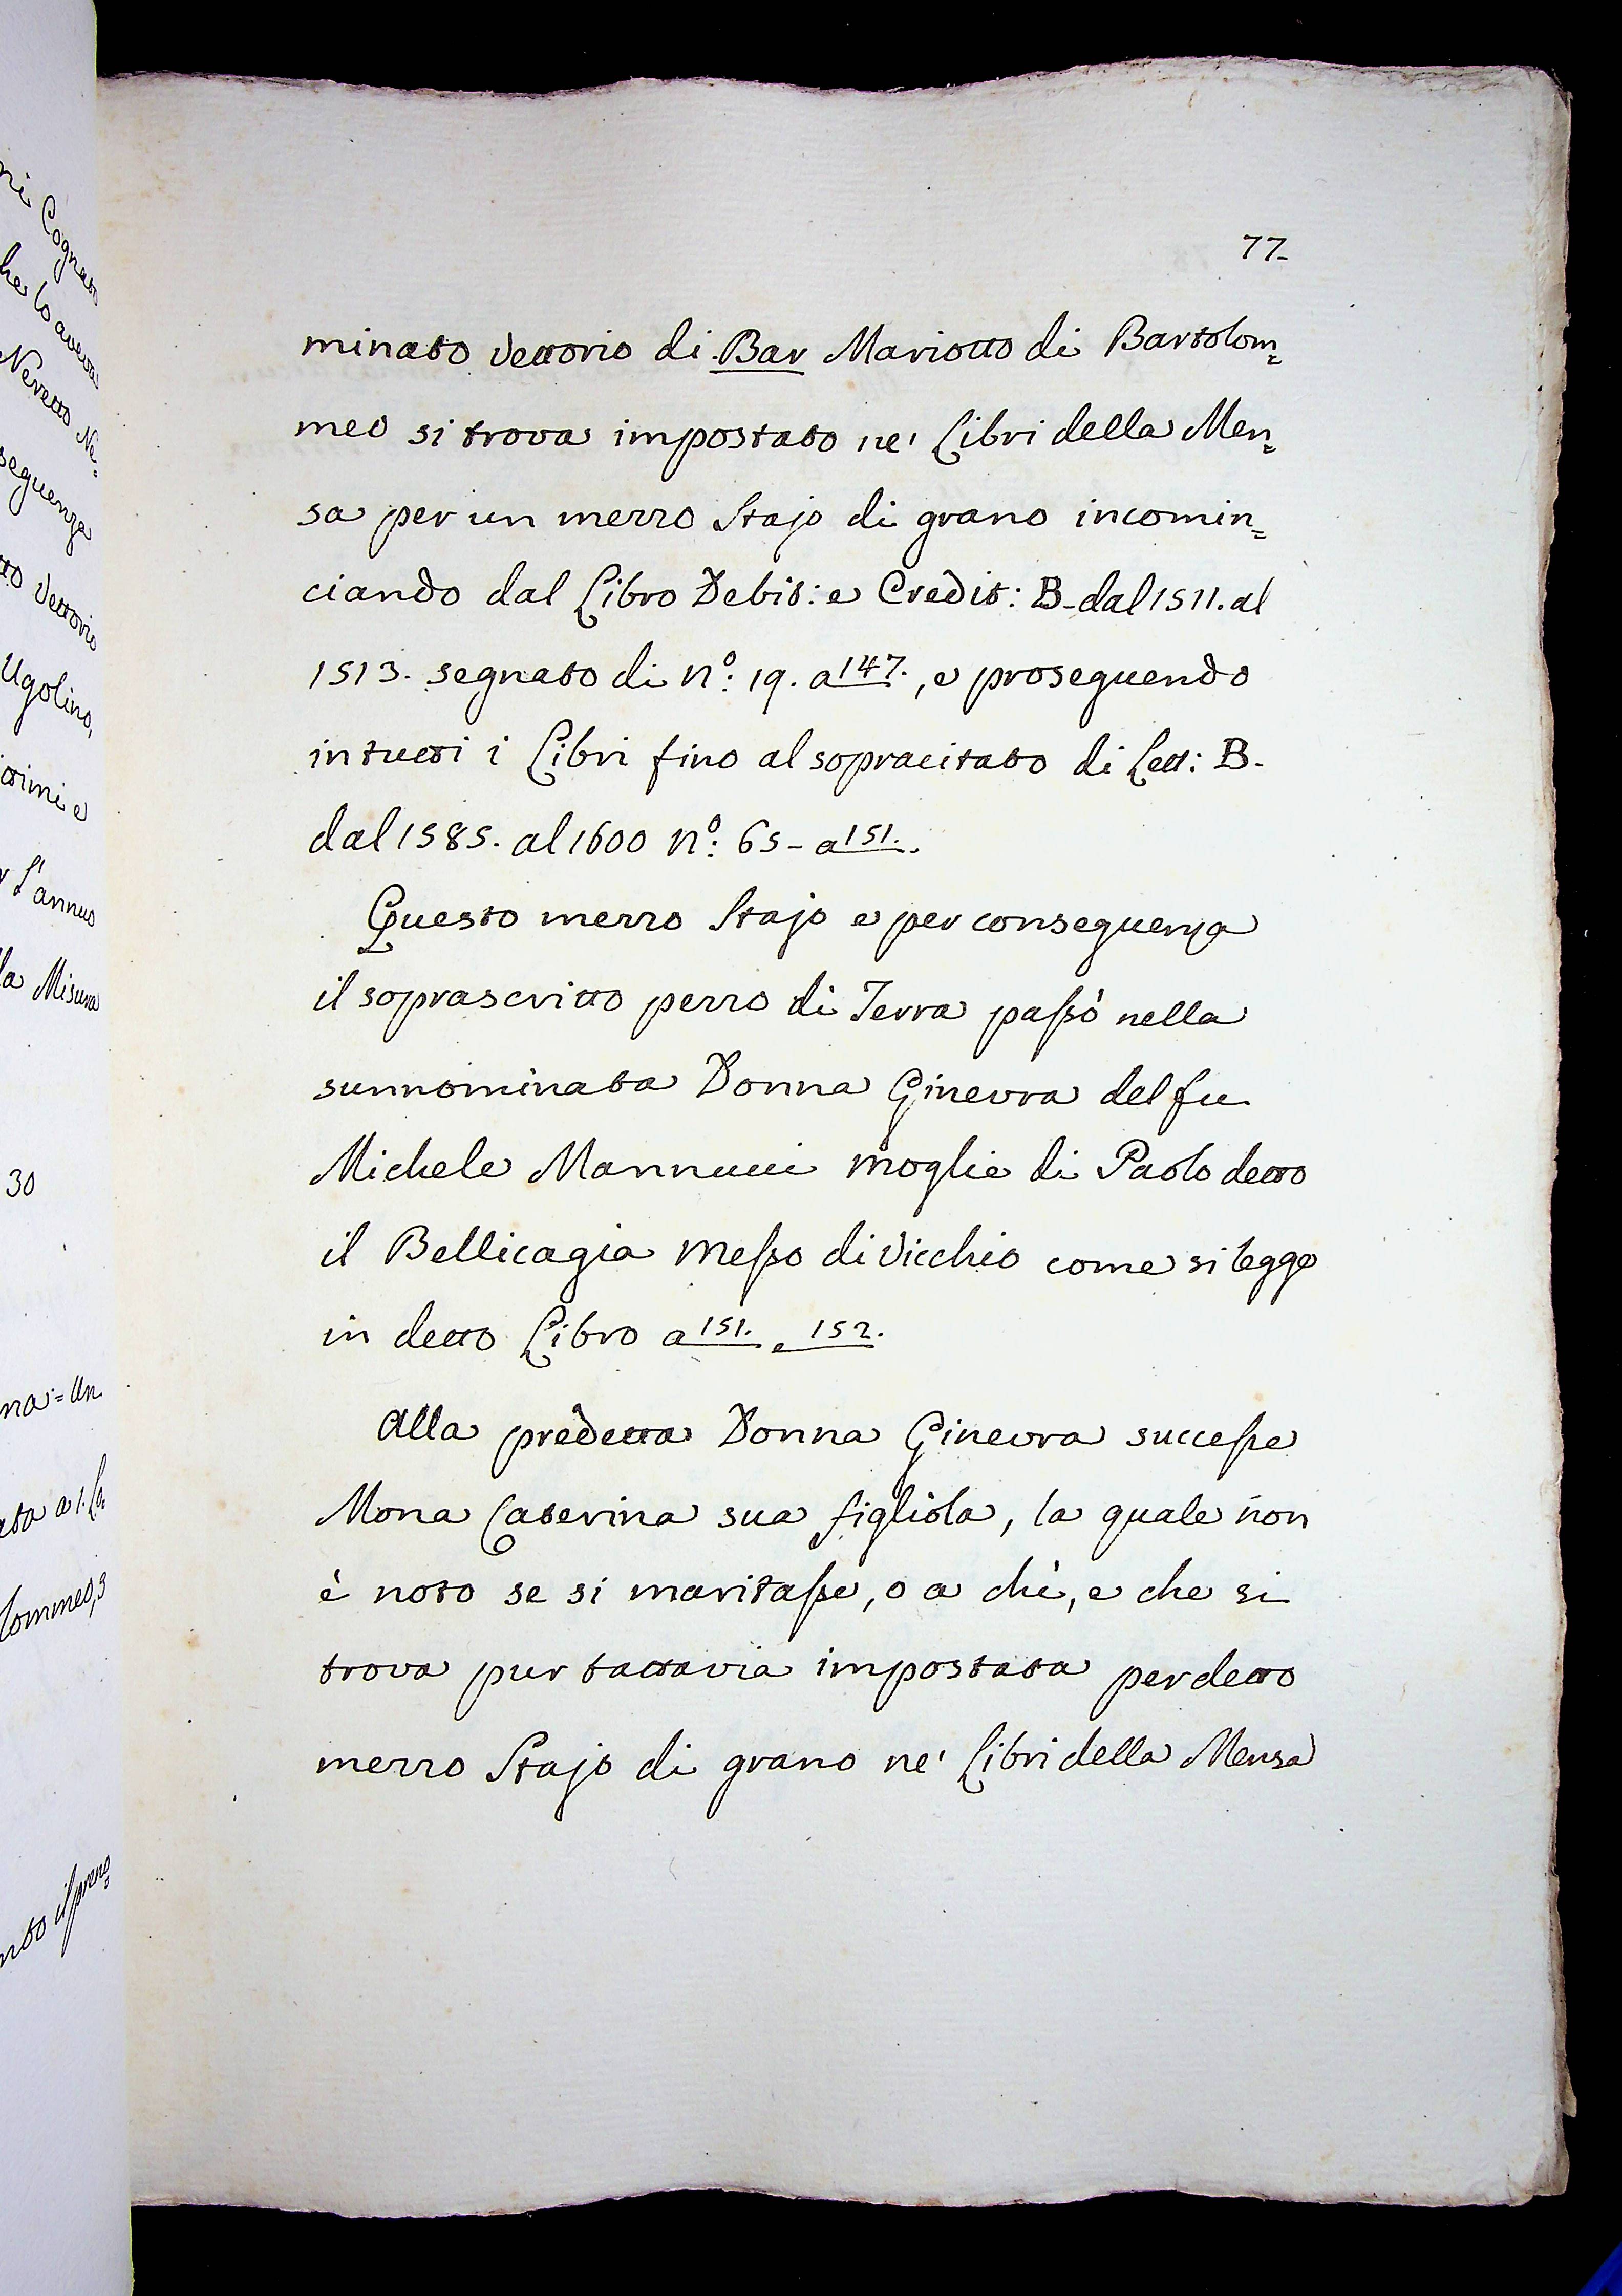 ni Cognato
he lo aveva
Neretto Ne=
seguenza
tto Vettorio
Ugolino,
ssimi e
r l'annuo
la Misura
30
na:= Un
ata a 1. La
lommeo, 3
nto il preno=
77-
minato Vettorio di Bar Mariotto di Bartolom=
meo si trova impostato ne' Libri della Men=
sa per un mezzo Stajo di grano incomin=
ciando dal Libro Debit: e Credit: B- dal 1511. al
1513. segnato di n.º: 19. a 147., e proseguendo
in tutti i Libri fino al sopracitato di Lett: B-
dal 1585. al 1600 n.º: 65- a 151..
Questo mezzo Stajo e per conseguenza
il soprascritto pezzo di Terra passò nella
sunnominata Donna Ginevra del fu
Michele Mannucci moglie di Paolo detto
il Bellicagia Messo di Vicchio come si legge
in detto Libro a 151. e 152.
Alla predetta Donna Ginevra successe
Mona Caterina sua figliola, la quale non
è noto se si maritasse, o a chi, e che si
trova pur tattavia impostata per detto
mezzo Stajo di grano ne' Libri della Mensa